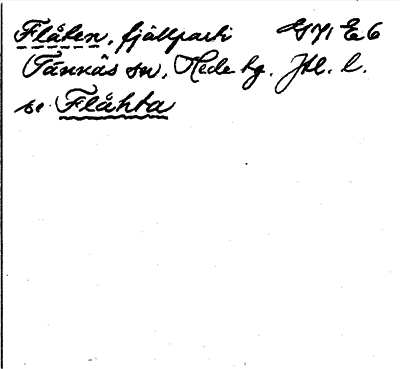 Flåten, fjällparti G71 E6
Tännäs sn, Hede tg. Jtl. l.
se Flåhta